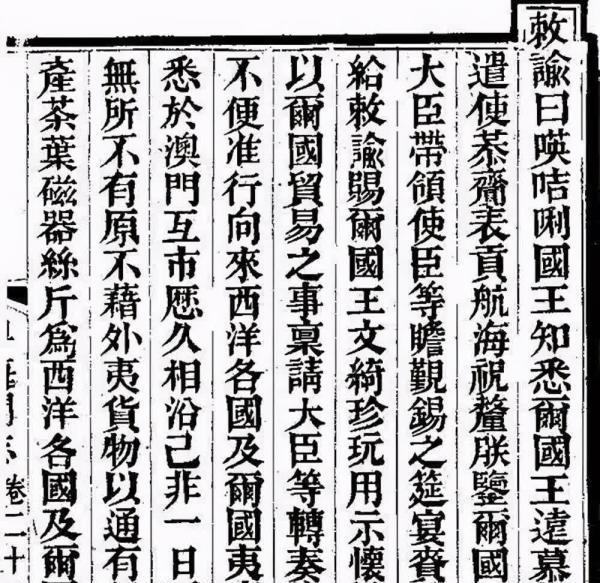 敕諭曰𠸄咭唎國王知悉爾國王遠慕
遣使恭齎表貢航海祝釐朕鑒爾國
大臣帶領使臣等瞻覲錫之筵宴賚
給敕諭賜爾國王文綺珍玩用示懷
以爾國貿易之事稟請大臣等轉奏
不便准行向來西洋各國及爾國夷
悉於澳門互市厯久相沿已非一日
無所不有原不藉外夷貨物以通有
產茶葉磁器絲斤爲西洋各國及爾
卷二十